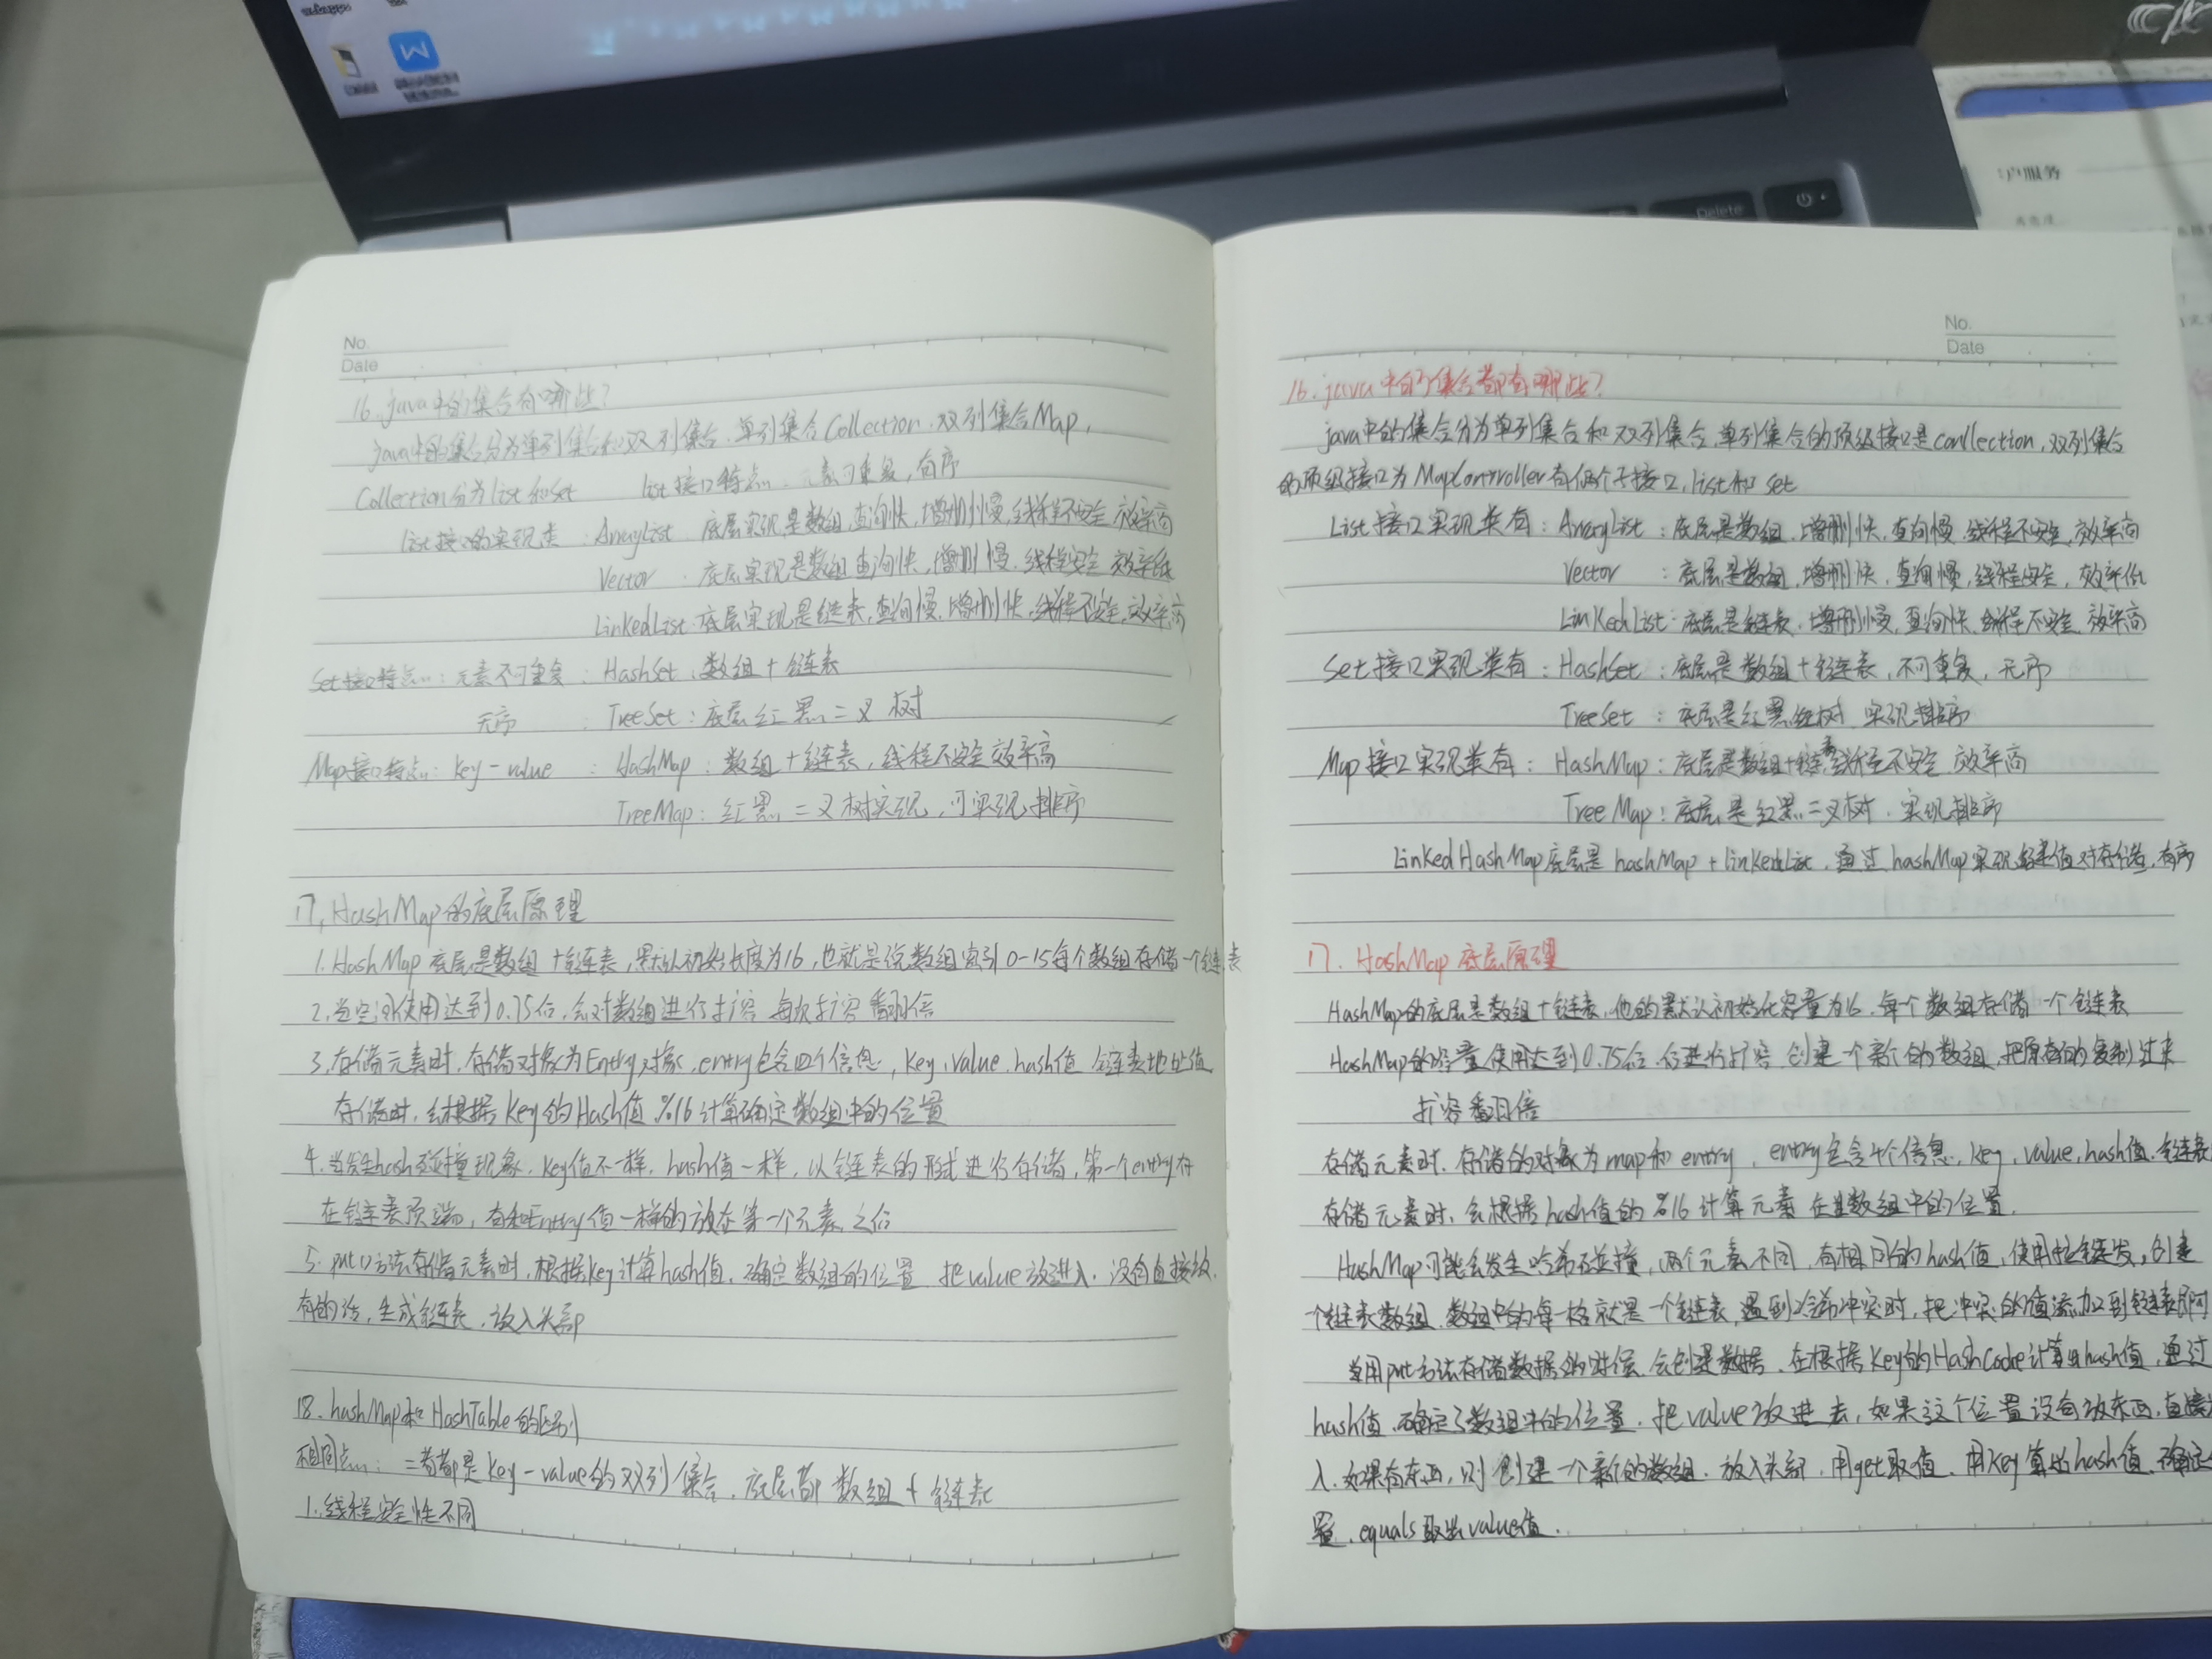 Delete
户服务
No.
Date
16.java中的集合有哪些?
java中的集合分为单列集合和双列集合.单列集合Collection.双列集合Map,
Collection分为list和set list接口特点:元素可重复,有序
list接口的实现类:ArrayList:底层实现是数组,查询快,增删慢,线程不安全,效率高
Vector:底层实现是数组查询快,增删慢.线程安全 效率低
LinkedList:底层实现是链表,查询慢,增删快,线程不安全,效率高
Set接口特点:元素不可重复:HashSet:数组+链表
无序:TreeSet:底层红黑二叉树
Map接口特点:key-value:HashMap:数组+链表,线程不安全效率高
TreeMap:红黑二叉树实现,可实现排序
17,HashMap的底层原理
1.HashMap底层是数组+链表,默认初始长度为16,也就是说数组索引0-15每个数组存储一个链表
2.当空间使用达到0.75后,会对数组进行扩容 每次扩容翻倍
3.存储元素时.存储对象为Entry对象,entry包含四个信息,key,value.hash值 链表地址值
存储时,会根据Key的Hash值%16计算确定数组中的位置
4.当发生hash碰撞现象,key值不一样,hash值一样,以链表的形式进行存储,第一个entry存
在链表顶端,有和Entry值一样的放在第一个元素之后
5.put()方法存储元素时,根据key计算hash值,确定数组的位置 把value放进入.没有直接放,
有的话,生成链表.放入头部
18.hashMap和HashTable的区别
相同点:二者都是key-value的双列集合.底层都数组+链表
1.线程安全性不同
No.
Date
16.java中的集合都有哪些?
java中的集合分为单列集合和双列集合,单列集合的顶级接口是conllection,双列集合
的顶级接口为MapController有俩个子接口,list和set
List接口实现类有:ArrayList:底层是数组.增删快,查询慢.线程不安全,效率高
Vector:底层是数组,增删快,查询慢,线程安全,效率低
LinkedList:底层是链表.增删慢,查询快,线程不安全,效率高
Set接口实现类有:HashSet:底层是数组+链表,不可重复,无序
TreeSet:底层是红黑树 实现排序
Map接口实现类有:HashMap:底层是数组+链表,线程不安全.效率高
TreeMap:底层是红黑二叉树.实现排序
LinkedHashMap底层是hashMap+linkedList,通过hashMap实现键值对存储,有序
17.HashMap底层原理
HashMap的底层是数组+链表,他的默认初始化容量为16.每个数组存储一个链表
HashMap的容量使用达到0.75后.后进行扩容.创建一个新的数组,把原有的复制过来
扩容翻倍
存储元素时.存储的对象为map和entry,entry包含4个信息,key,value,hash值.链表
存储元素时,会根据hash值的%16计算元素在数组中的位置.
HashMap可能会发生哈希碰撞,两个元素不同,有相同的hash值,使用拉链发,创建
一个链表数组.数组中的每一格就是一个链表,遇到哈希冲突时,把冲突的值添加到链表即可
当用put方法存储数据的时候.会创建数据.在根据Key的HashCode计算出hash值,通过
hash值.确定了数组中的位置.把value放进去,如果这个位置没有放东西,直接
入.如果有东西,则创建一个新的数组.放入头部.用get取值.用key算出hash值.确定
置.equals取出value值.